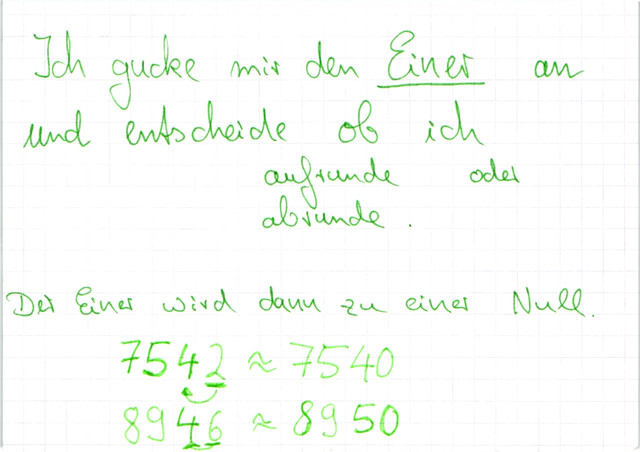 Ich gucke mir den Einer an
und entscheide ob ich
aufrunde oder
abrunde.
Der Einer wird dann zu einer Null.
7542 ≈ 7540
8946 ≈ 8950